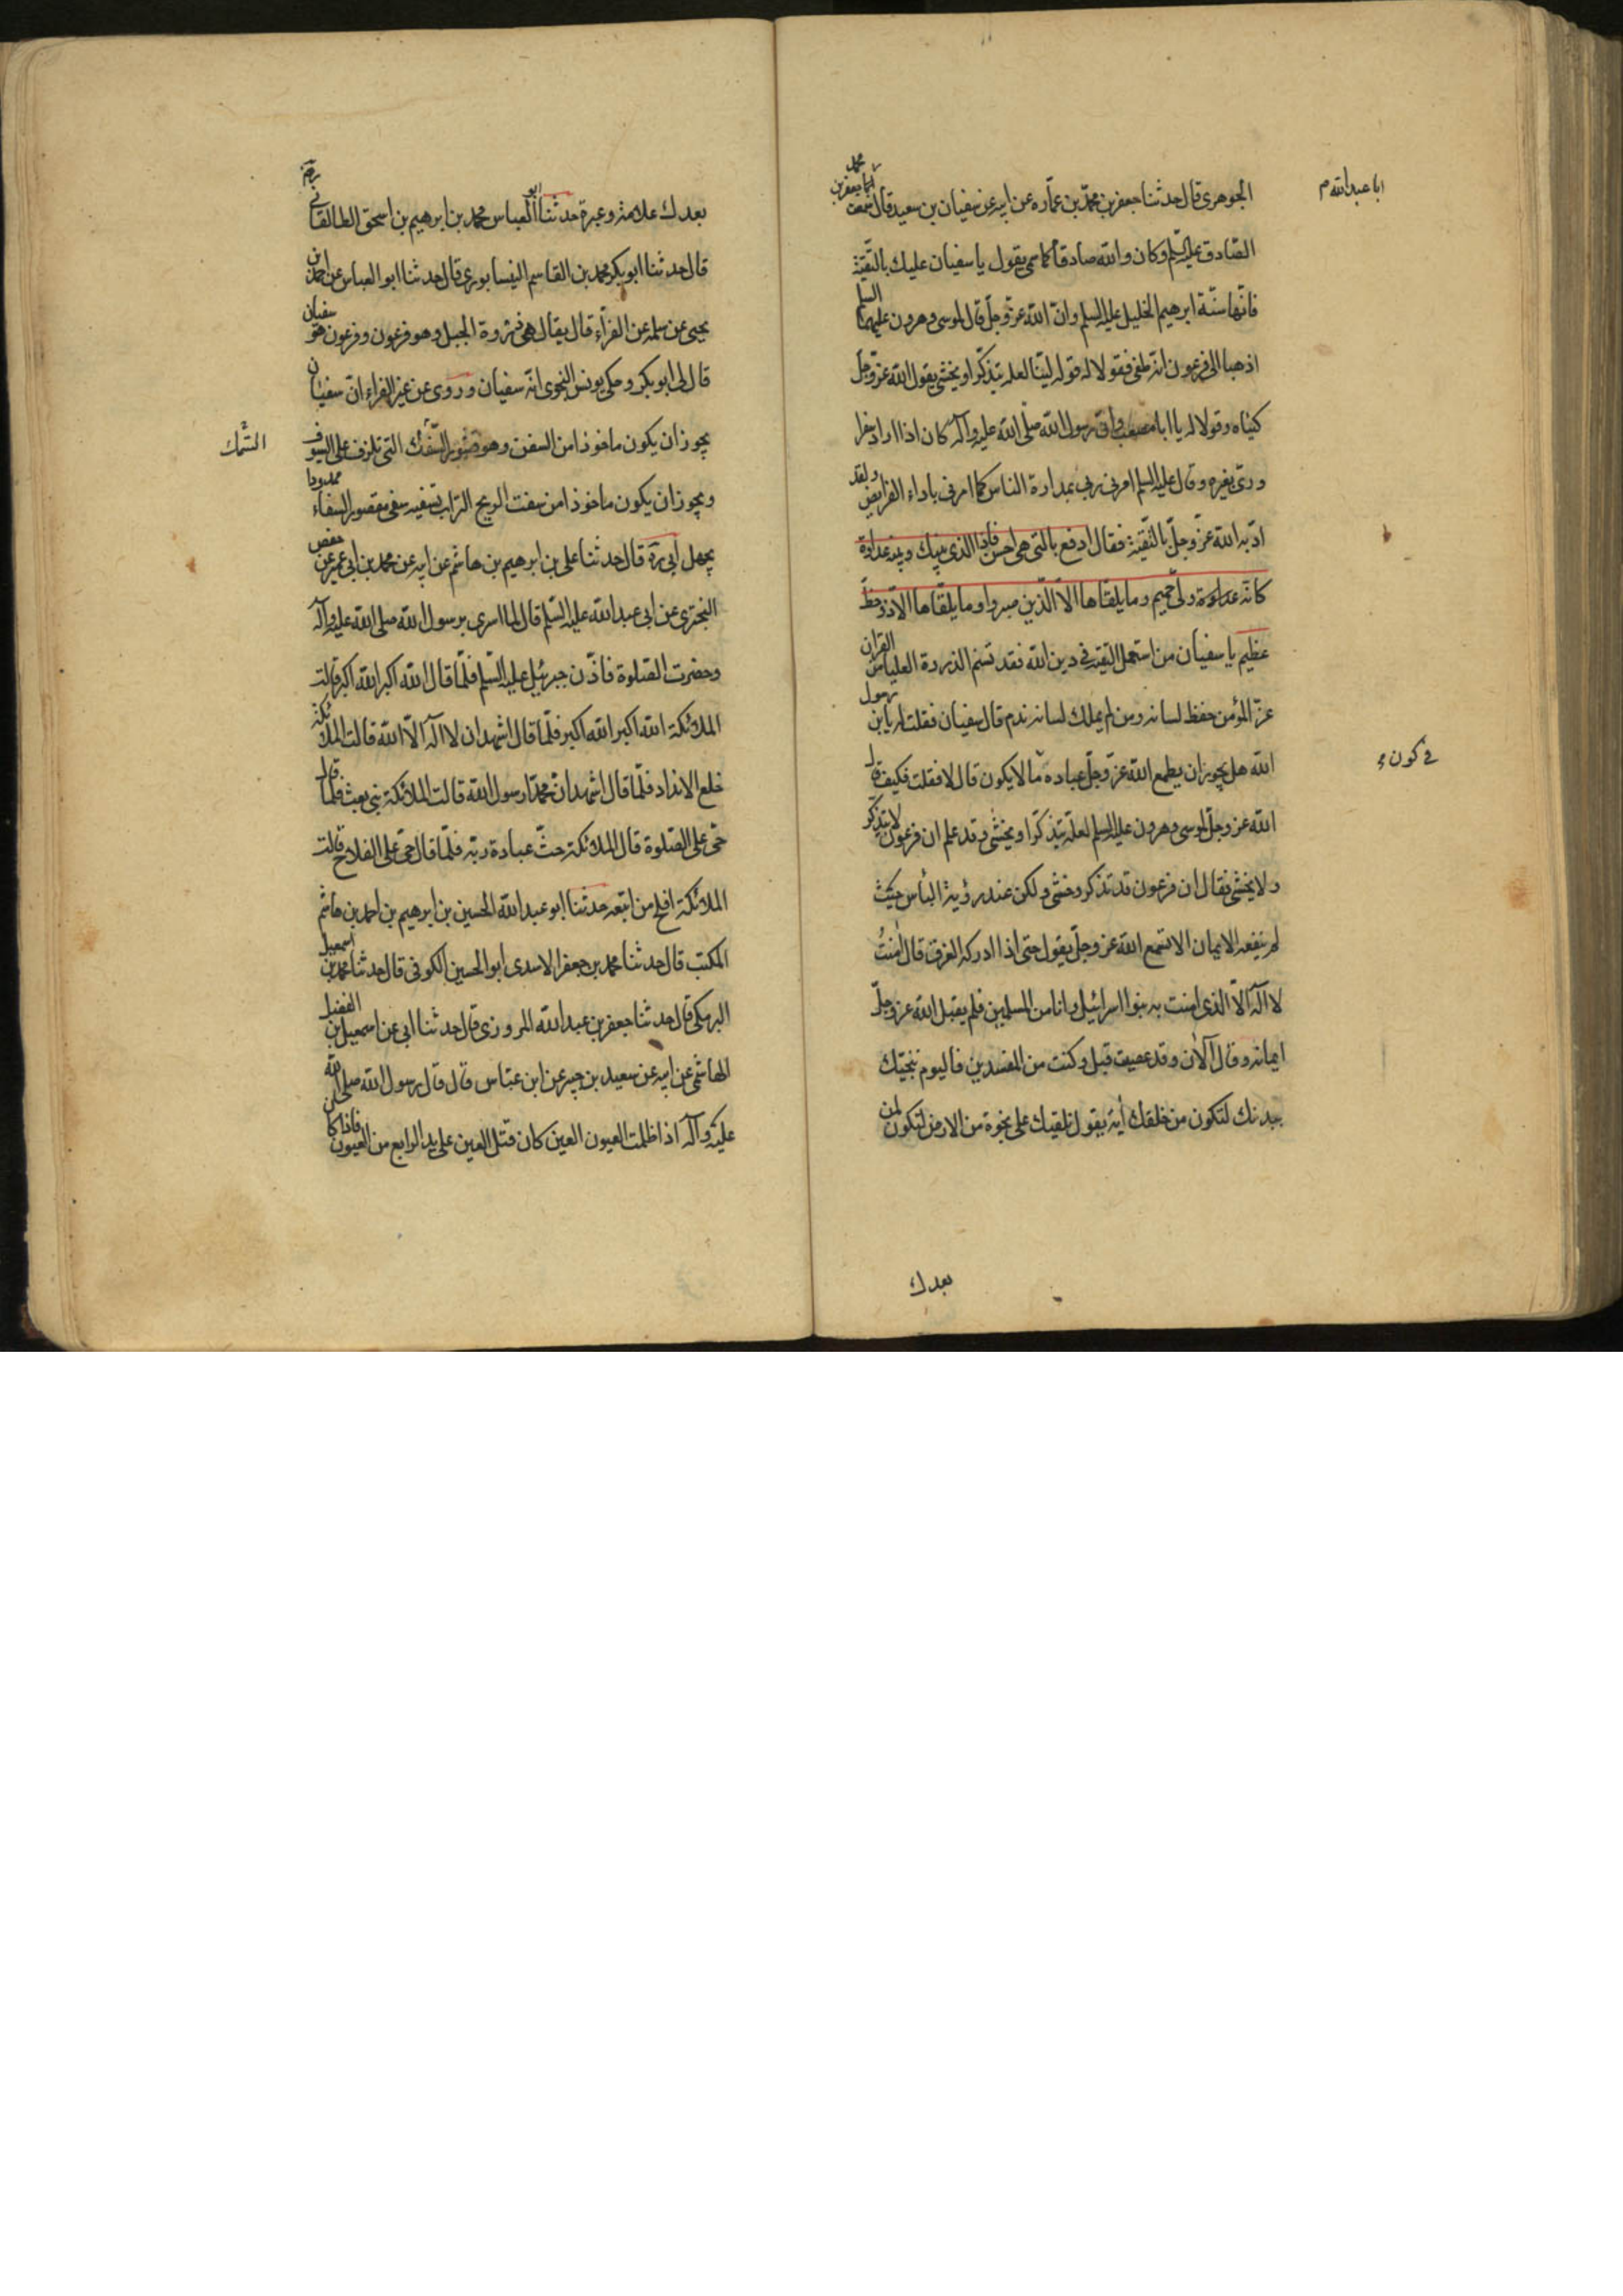 الجوهرى قال حدثنا جعفر بن محمد بن عماره عن ابيه عن سفيان بن سعيد قال سمعت
ابا عبد الله م
الصادق عليه السلم وكان والله صادقا كما سمى يقول يا سفيان عليك بالتقية
فانها سنة ابرهيم الخليل عليه السلم وان الله عز وجل قال لموسى وهرون عليهما السلم
اذهبا الى فرعون انه طغى فقولا له قولا لينا لعله يتذكر او يخشى يقول الله عز وجل
كنياه وقولا له يا ابا مصعب وان رسول الله صلى الله عليه وآله كان اذا اراد سفرا
ورى بغيره وقال عليه السلم امرنى ربى بمداراة الناس كما امرنى باداء الفرايض ولقد
ادبه الله عز وجل بالتقية فقال ادفع بالتى هى احسن فاذا الذى بينك وبينه عداوة
كانه ولى حميم وما يلقاها الا الذين صبروا وما يلقاها الا ذو حظ
عظيم يا سفيان من استعمل التقية فى دين الله فقد تسنم الذروة العليا من القران
عز المؤمن حفظ لسانه ومن لم يملك لسانه ندم قال سفيان فقلت له يا بن رسول
الله هل يجوز ان يطمع الله عز وجل عباده ما لا يكون قال لا فقلت فكيف قال
فى كون
الله عز وجل لموسى وهرون عليه السلم لعله يتذكر او يخشى وقد علم ان فرعون لا يتذكر
ولا يخشى فقال ان فرعون قد تذكر وخشى ولكن عند رؤية البأس حيث
لم ينفعه الايمان الا تسمع الله عز وجل يقول حتى اذا ادركه الغرق قال امنت
لا اله الا الذى امنت به بنوا اسرائيل وانا من المسلمين فلم يقبل الله عز وجل
ايمانه وقال آلآن وقد عصيت قبل وكنت من المفسدين فاليوم ننجيك
ببدنك لتكون من خلفك أية يقول نلقيك على نجوة من الارض لتكون لمن
بعدك
بعدك علامة وعبرة حدثنا ابو العباس محمد بن ابرهيم بن اسحق الطالقانى
قال حدثنا ابو بكر محمد بن القاسم النيسابورى قال حدثنا ابو العباس عن احمد بن
يحيى عن سلمه عن الفراء قال يقال هى ذروة الجبل وهو فرعون وفرعون هو سفيان
قال لى ابو بكر وحكى يونس النحوى انه سفيان وروى عن غير الفراء ان سفيان
يجوز ان يكون ماخوذا من السفن وهو قشور السمك التى تلزق على السيوف
السمك
ويجوز ان يكون ماخوذا من سفت الريح التراب تسفيه سفى مقصور السفاء ممدودا
يجهل ابى ره قال حدثنا على بن ابرهيم بن هاشم عن ابيه عن محمد بن ابى عمير عن حفص
البخترى عن ابى عبد الله عليه السلم قال لما اسرى برسول الله صلى الله عليه وآله
وحضرت الصلوة فاذن جبرئيل عليه السلم فلما قال الله اكبر الله اكبر قالت
الملائكة الله اكبر الله اكبر فلما قال اشهد ان لا اله الا الله قالت الملائكة
خلع الانداد فلما قال اشهد ان محمدا رسول الله قالت الملائكة نبى بعث فلما قال
حى على الصلوة قال الملائكة حث عبادة ربه فلما قال حى على الفلاح قالت
الملائكة افلح من اتبعه حدثنا ابو عبد الله الحسين بن ابرهيم بن احمد بن هاشم
المكتب قال حدثنا محمد بن جعفر الاسدى ابو الحسين الكوفى قال حدثنا محمد بن اسمعيل
البرمكى قال حدثنا جعفر بن عبد الله المروزى قال حدثنا ابى عن اسمعيل بن الفضل
الهاشمى عن ابيه عن سعيد بن جبير عن ابن عباس قال قال رسول الله صلى الله
عليه وآله اذا ظلمت العيون العين كان قتل العين على يد الرابع من العيون فاذا كان